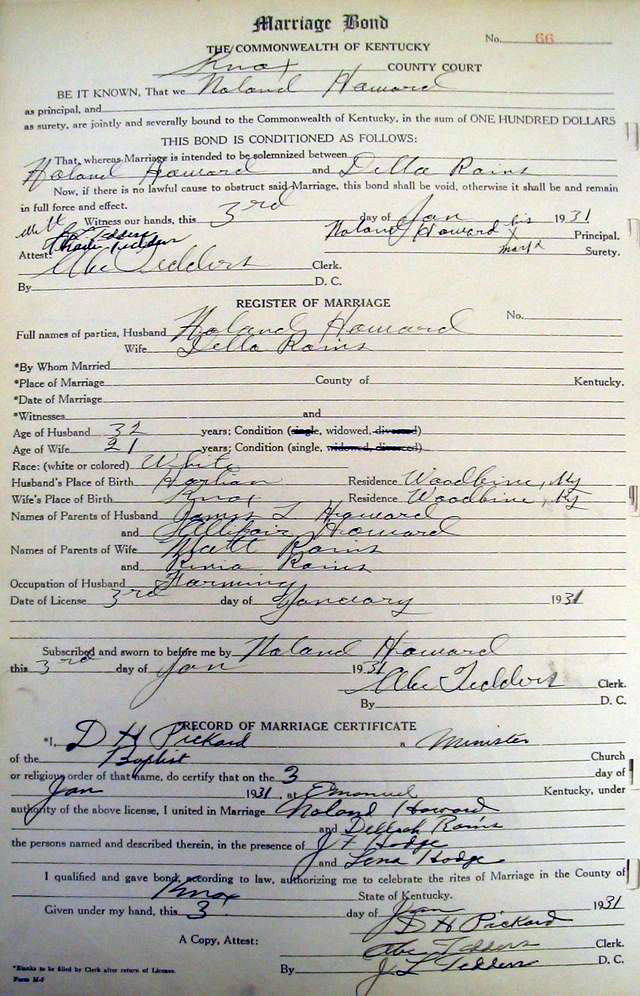 Marriage Bond
No. 66
THE COMMONWEALTH OF KENTUCKY
Knox COUNTY COURT
BE IT KNOWN, That we Noland Howard
as principal, and
as surety, are jointly and severally bound to the Commonwealth of Kentucky, in the sum of ONE HUNDRED DOLLARS
THIS BOND IS CONDITIONED AS FOLLOWS:
That, whereas Marriage is intended to be solemnized between
Noland Howard and Della Rains
Now, if there is no lawful cause to obstruct said Marriage, this bond shall be void, otherwise it shall be and remain
in full force and effect.
Witness our hands, this 3rd day of Jan 1931
Noland Howard his X mark Principal.
Tedders
Attest: Surety.
Abe Tedders Clerk.
By D. C.
REGISTER OF MARRIAGE
No.
Full names of parties, Husband Noland Howard
Wife Della Rains
*By Whom Married
*Place of Marriage County of Kentucky.
*Date of Marriage
*Witnesses and
Age of Husband 32 years; Condition (single, widowed, divorced)
Age of Wife 21 years; Condition (single, widowed, divorced)
Race: (white or colored) White
Husband's Place of Birth Harlan Residence Woodbine, Ky
Wife's Place of Birth Knox Residence Woodbine, Ky
Names of Parents of Husband James L Howard
and Howard
Names of Parents of Wife Matt Rains
and Rains
Occupation of Husband Farming
Date of License 3rd day of January 1931
Subscribed and sworn to before me by Noland Howard
this 3rd day of Jan 1931
Abe Tedders Clerk.
By D. C.
RECORD OF MARRIAGE CERTIFICATE
*I, D H Pickard a Minister
of the Baptist Church
or religious order of that name, do certify that on the 3 day of
Jan 1931, at Emanuel Kentucky, under
authority of the above license, I united in Marriage Noland Howard
and Dellah Rains
the persons named and described therein, in the presence of J F Hodge
and Lena Hodge
I qualified and gave bond, according to law, authorizing me to celebrate the rites of Marriage in the County of
Knox State of Kentucky.
Given under my hand, this 3 day of Jan 1931
D H Pickard
A Copy, Attest: Abe Tedders Clerk.
By J L Tedders D. C.
*Blanks to be filed by Clerk after return of License.
Form M-8